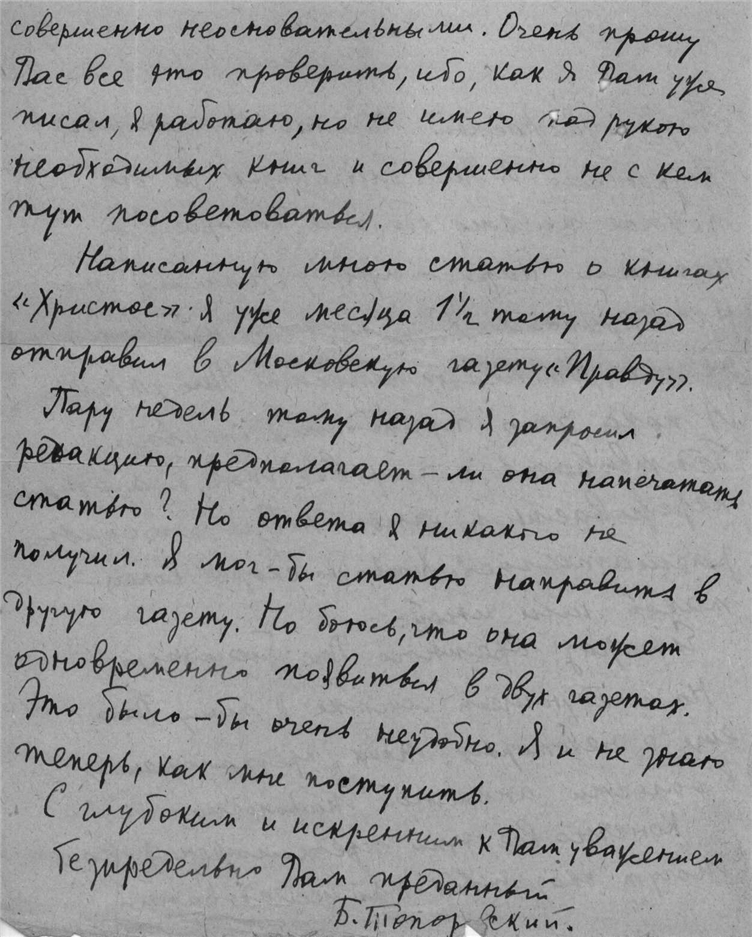 совершенно неосновательными. Очень прошу
Вас все это проверить, ибо, как я Вам уже
писал, я работаю, но не имею под рукою
необходимых книг и совершенно не с кем
тут посоветоваться.
Написанную мною статью о книгах
«Христос» я уже месяца 1½ тому назад
отправил в Московскую газету «Правду».
Пару недель тому назад я запросил
редакцию, предполагает-ли она напечатать
статью? Но ответа я никакого не
получил. Я мог-бы статью направить в
другую газету. Но боюсь, что она может
одновременно появиться в двух газетах.
Это было-бы очень неудобно. Я и не знаю
теперь, как мне поступить.
С глубоким и искренним к Вам уважением
безпредельно Вам преданный